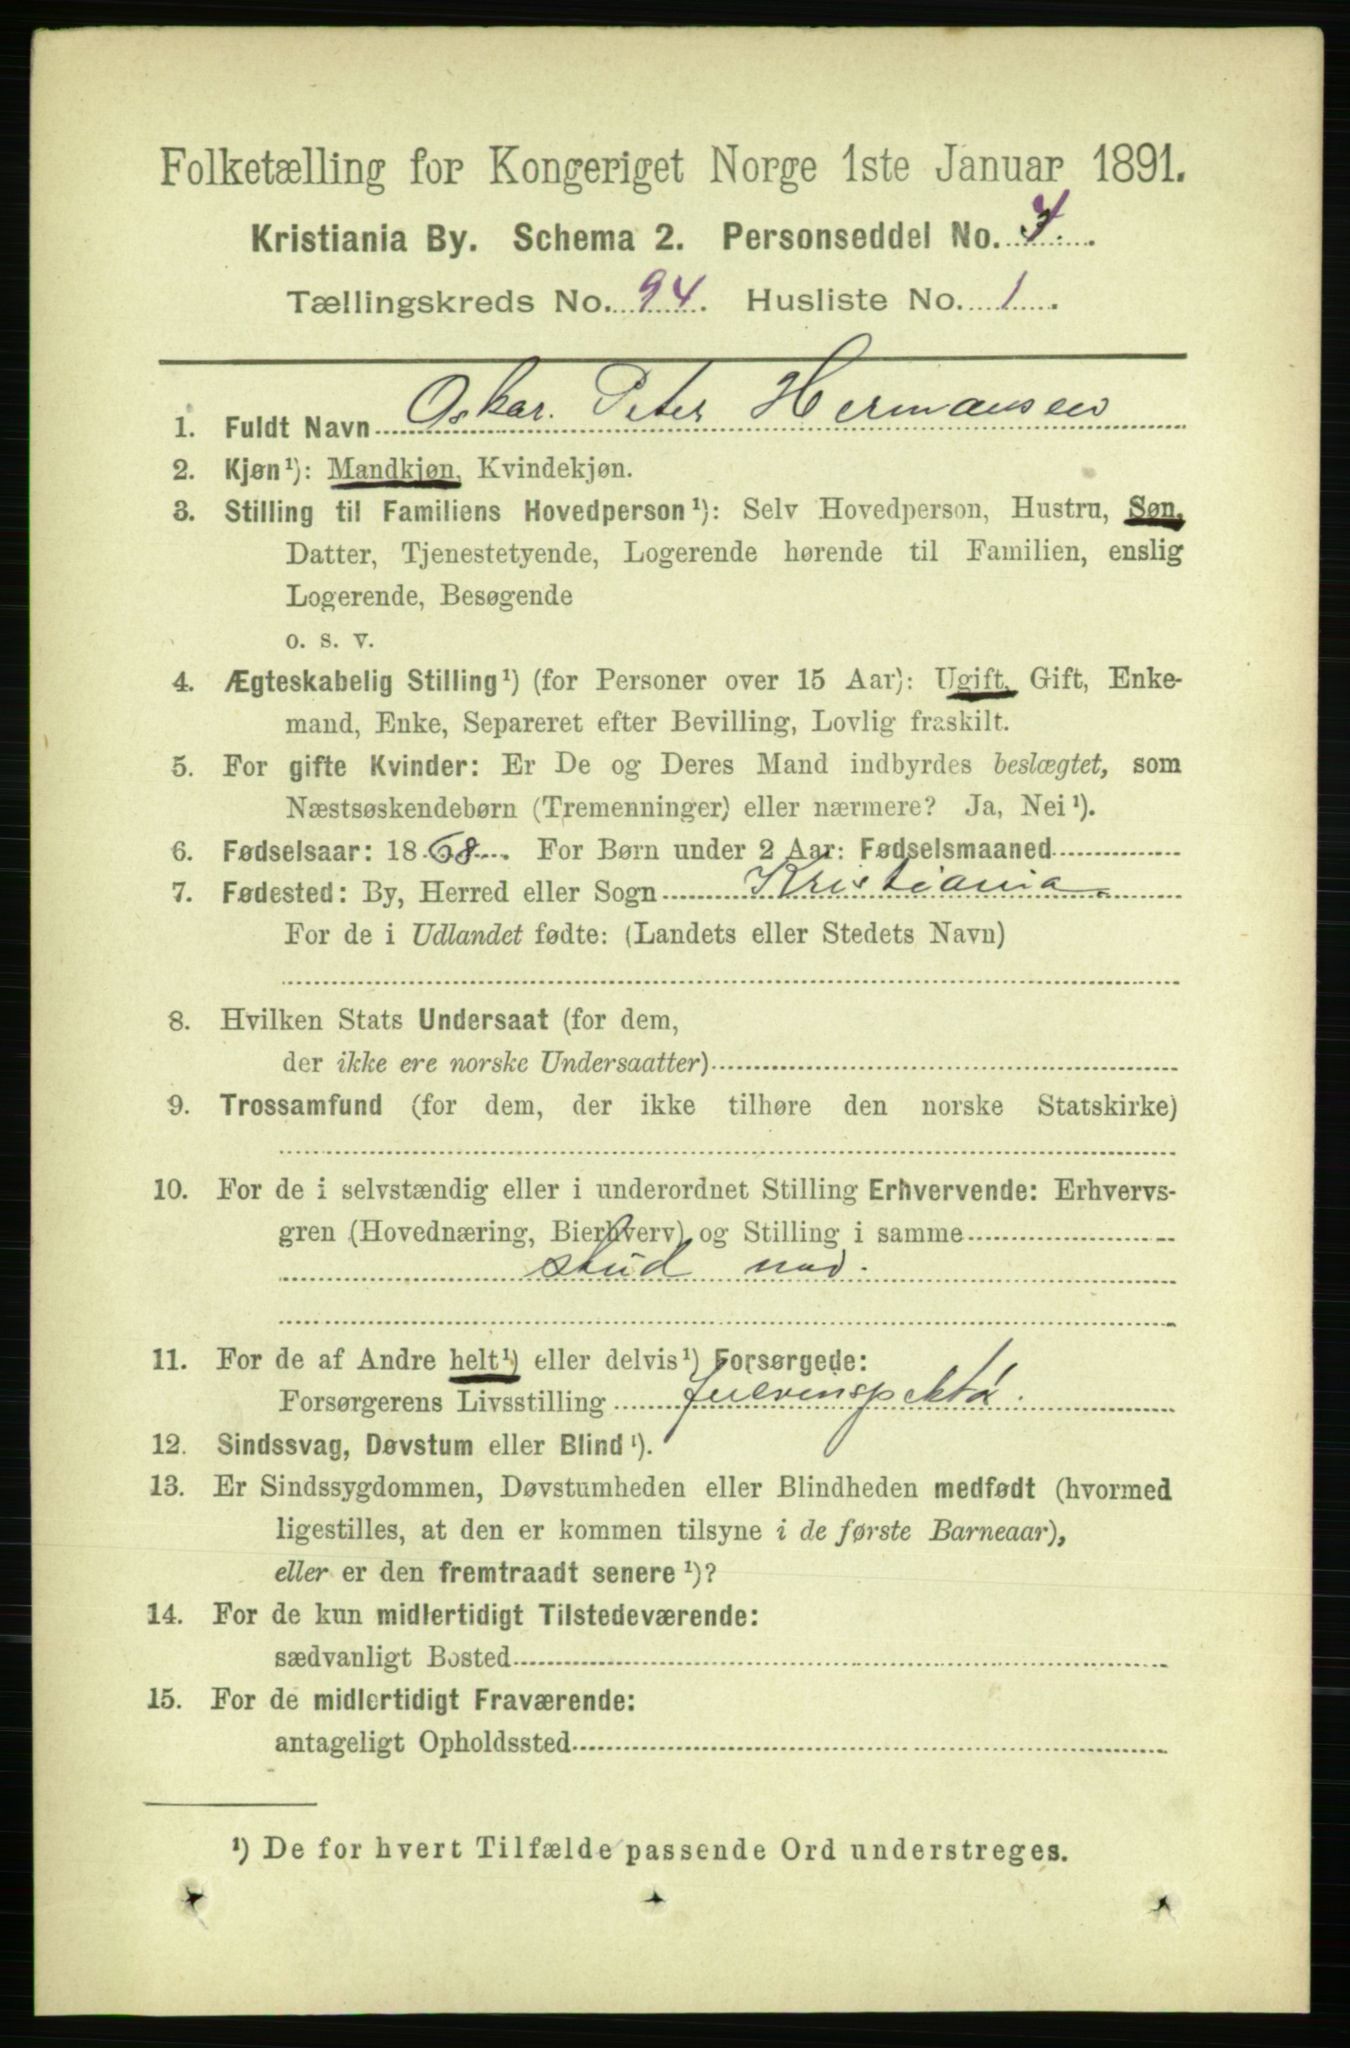 Folketælling for Kongeriget Norge 1ste Januar 1891.
Kristiania By. Schema 2. Personseddel No. 4.
Tællingskreds No. 94. Husliste No. 1.
1. Fuldt Navn Oskar. Peter Hermansen
2. Kjøn¹): Mandkjøn, Kvindekjøn.
3. Stilling til Familiens Hovedperson¹): Selv Hovedperson, Hustru, Søn,
Datter, Tjenestetyende, Logerende hørende til Familien, enslig
Logerende, Besøgende
o. s. v.
4. Ægteskabelig Stilling¹) (for Personer over 15 Aar): Ugift, Gift, Enke-
mand, Enke, Separeret efter Bevilling, Lovlig fraskilt.
5. For gifte Kvinder: Er De og Deres Mand indbyrdes beslægtet, som
Næstsøskendebørn (Tremenninger) eller nærmere? Ja, Nei¹).
6. Fødselsaar: 1868. For Børn under 2 Aar: Fødselsmaaned
7. Fødested: By, Herred eller Sogn Kristiania
For de i Udlandet fødte: (Landets eller Stedets Navn)
8. Hvilken Stats Undersaat (for dem,
der ikke ere norske Undersaatter)
9. Trossamfund (for dem, der ikke tilhøre den norske Statskirke)
10. For de i selvstændig eller i underordnet Stilling Erhvervende: Erhvervs-
gren (Hovednæring, Bierhverv) og Stilling i samme
stud
11. For de af Andre helt¹) eller delvis¹) Forsørgede:
Forsørgerens Livsstilling
12. Sindssvag, Døvstum eller Blind¹).
13. Er Sindssygdommen, Døvstumheden eller Blindheden medfødt (hvormed
ligestilles, at den er kommen tilsyne i de første Barneaar),
eller er den fremtraadt senere¹)?
14. For de kun midlertidigt Tilstedeværende:
sædvanligt Bosted
15. For de midlertidigt Fraværende:
antageligt Opholdssted
¹) De for hvert Tilfælde passende Ord understreges.